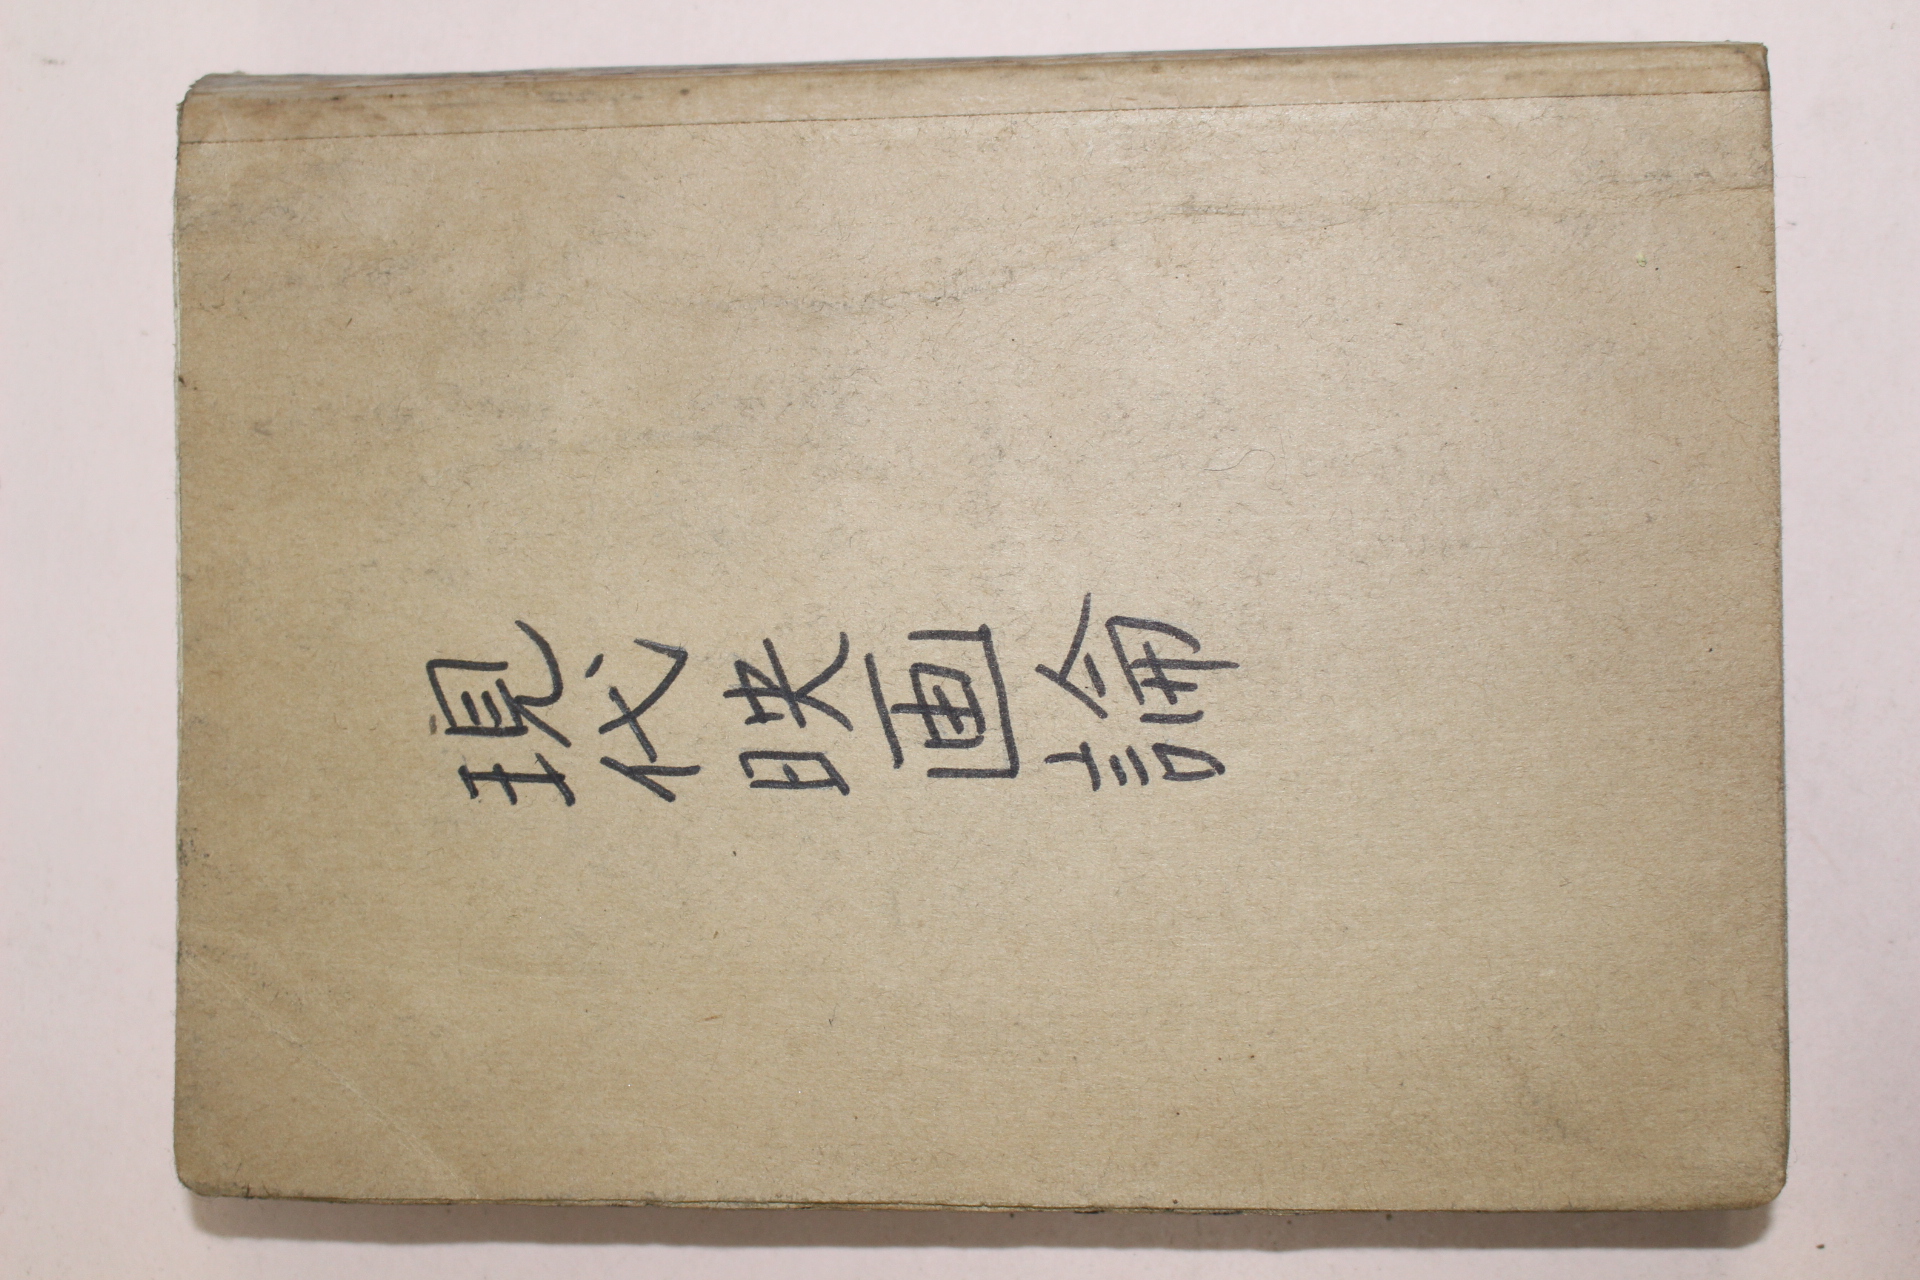 現代映画論